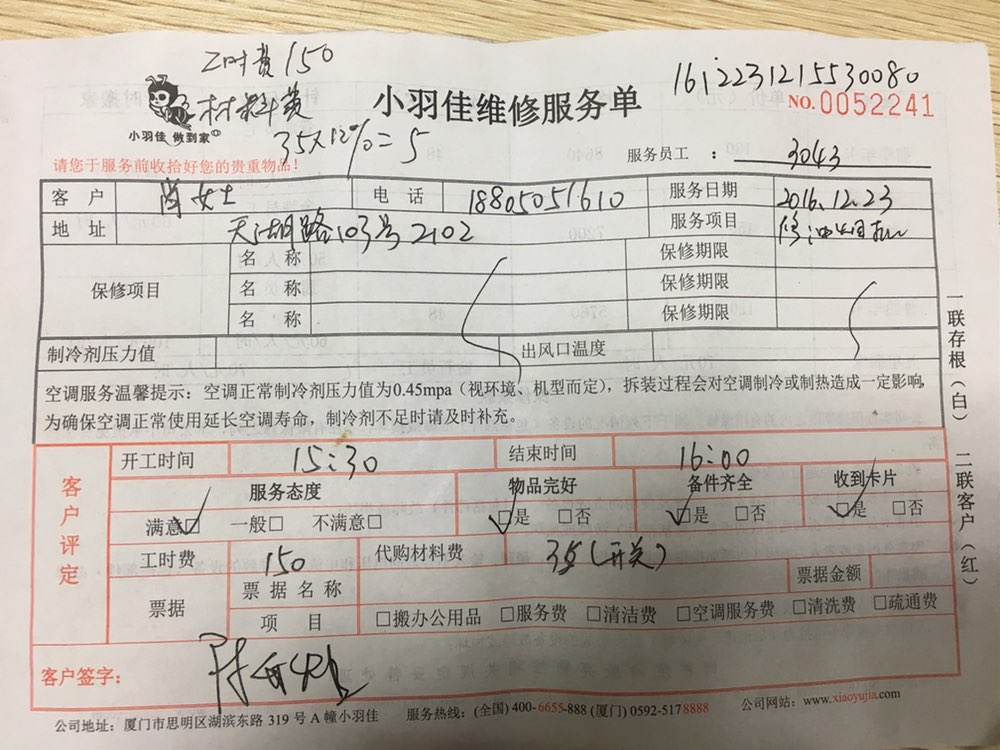 工时费150
161223121553 0080
材料费
小羽佳维修服务单
NO.0052241
小羽佳 做到家
35×12%=5
请您于服务前收拾好您的贵重物品!
服务员工 : 3043
客 户 肖女士 电 话 18805051610 服务日期 2016.12.23
地 址 天湖路103号2102 服务项目
保修项目
名 称 保修期限
名 称 保修期限
名 称 保修期限
制冷剂压力值 出风口温度
空调服务温馨提示:空调正常制冷剂压力值为0.45mpa(视环境、机型而定),拆装过程会对空调制冷或制热造成一定影响,
为确保空调正常使用延长空调寿命,制冷剂不足时请及时补充。
一联存根(白) 二联客户(红)
客户评定
开工时间 15:30 结束时间 16:00
服务态度 物品完好 备件齐全 收到卡片
满意☑ 一般□ 不满意□ ☑是 □否 ☑是 □否 ☑是 □否
工时费 150 代购材料费 35(开关)
票据
票 据 名 称 票据金额
项 目 □搬办公用品 □服务费 □清洁费 □空调服务费 □清洗费 □疏通费
客户签字:
公司地址:厦门市思明区湖滨东路 319 号 A 幢小羽佳 服务热线:(全国) 400-6655-888 (厦门) 0592-5178888 公司网站:www.xiaoyujia.com